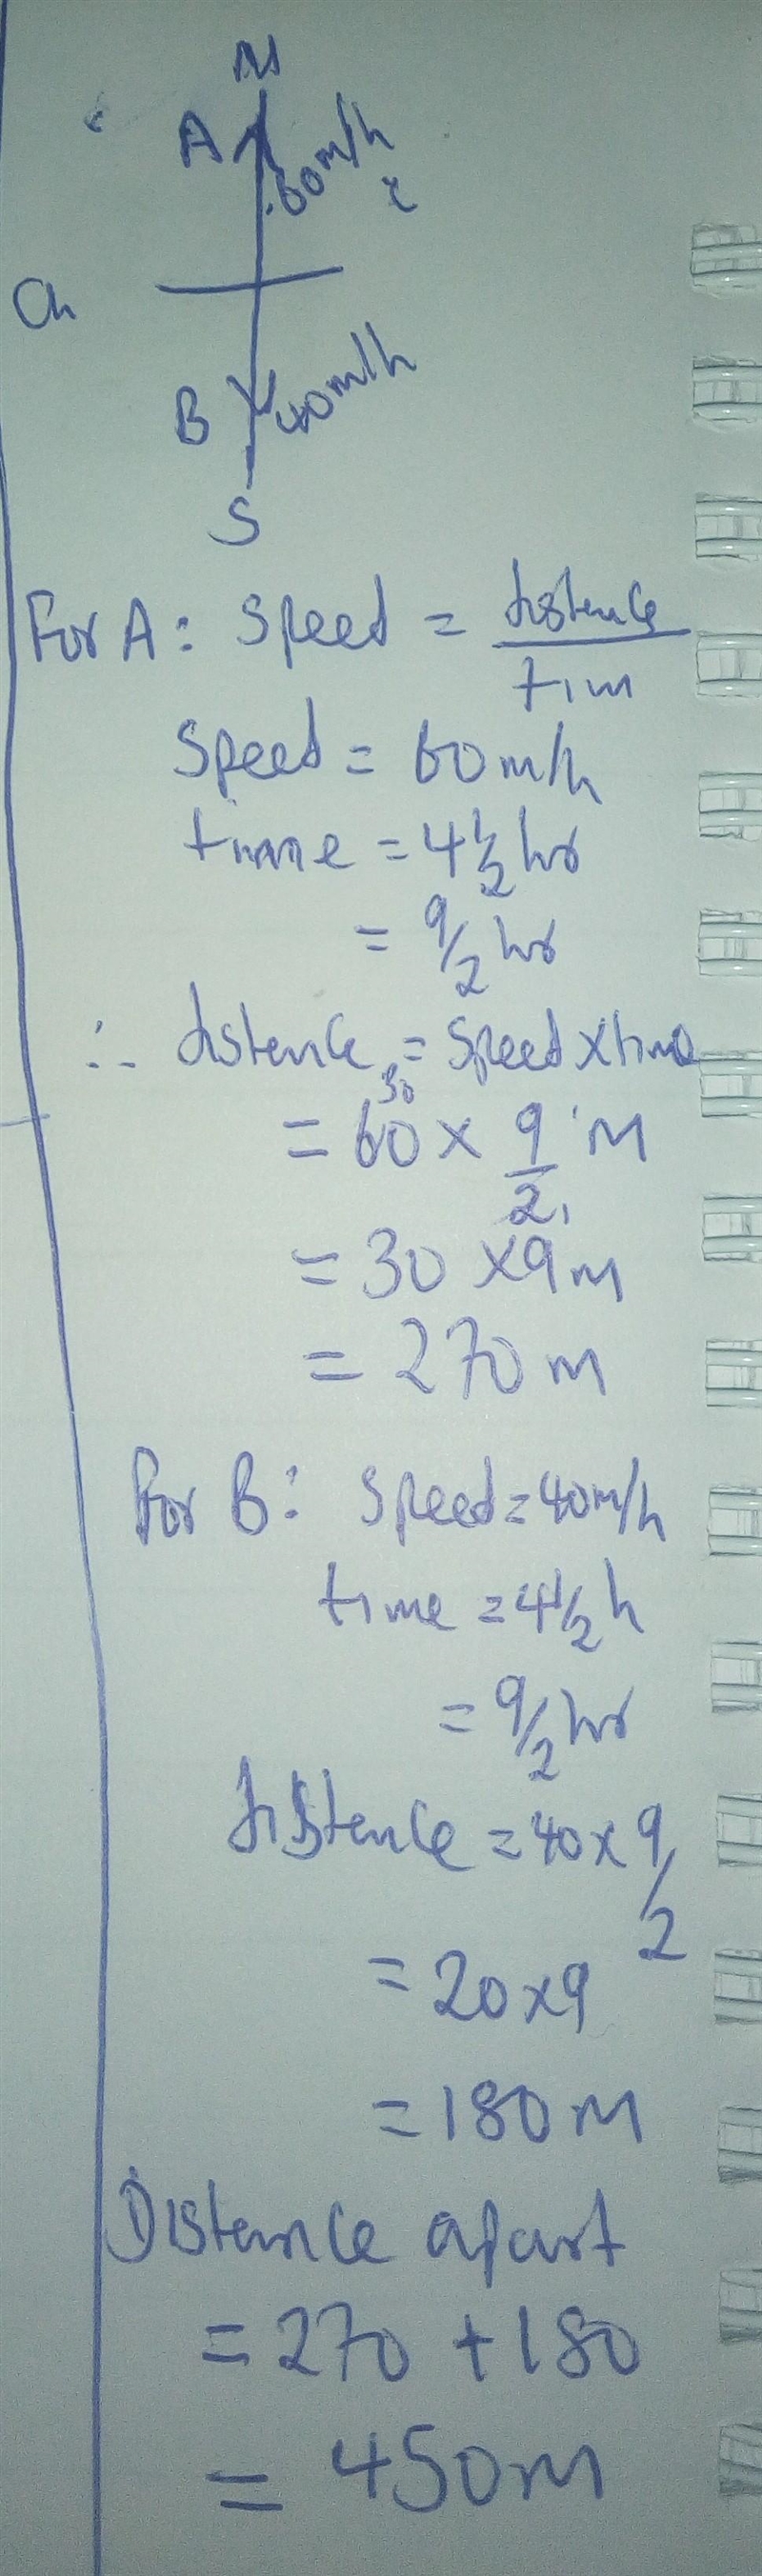 N
A 60m/h
a
B 40m/h
S
For A: Speed = distance/tim
Speed = 60m/h
time = 4½ hr
= 9/2 hr
∴ distance = Speed x time
30
= 60 x 9/2 m
1
= 30 x 9m
= 270m
For B: Speed = 40m/h
time = 4½ h
= 9/2 hr
distance = 40 x 9/2
= 20 x 9
= 180m
Distance apart
= 270 + 180
= 450m